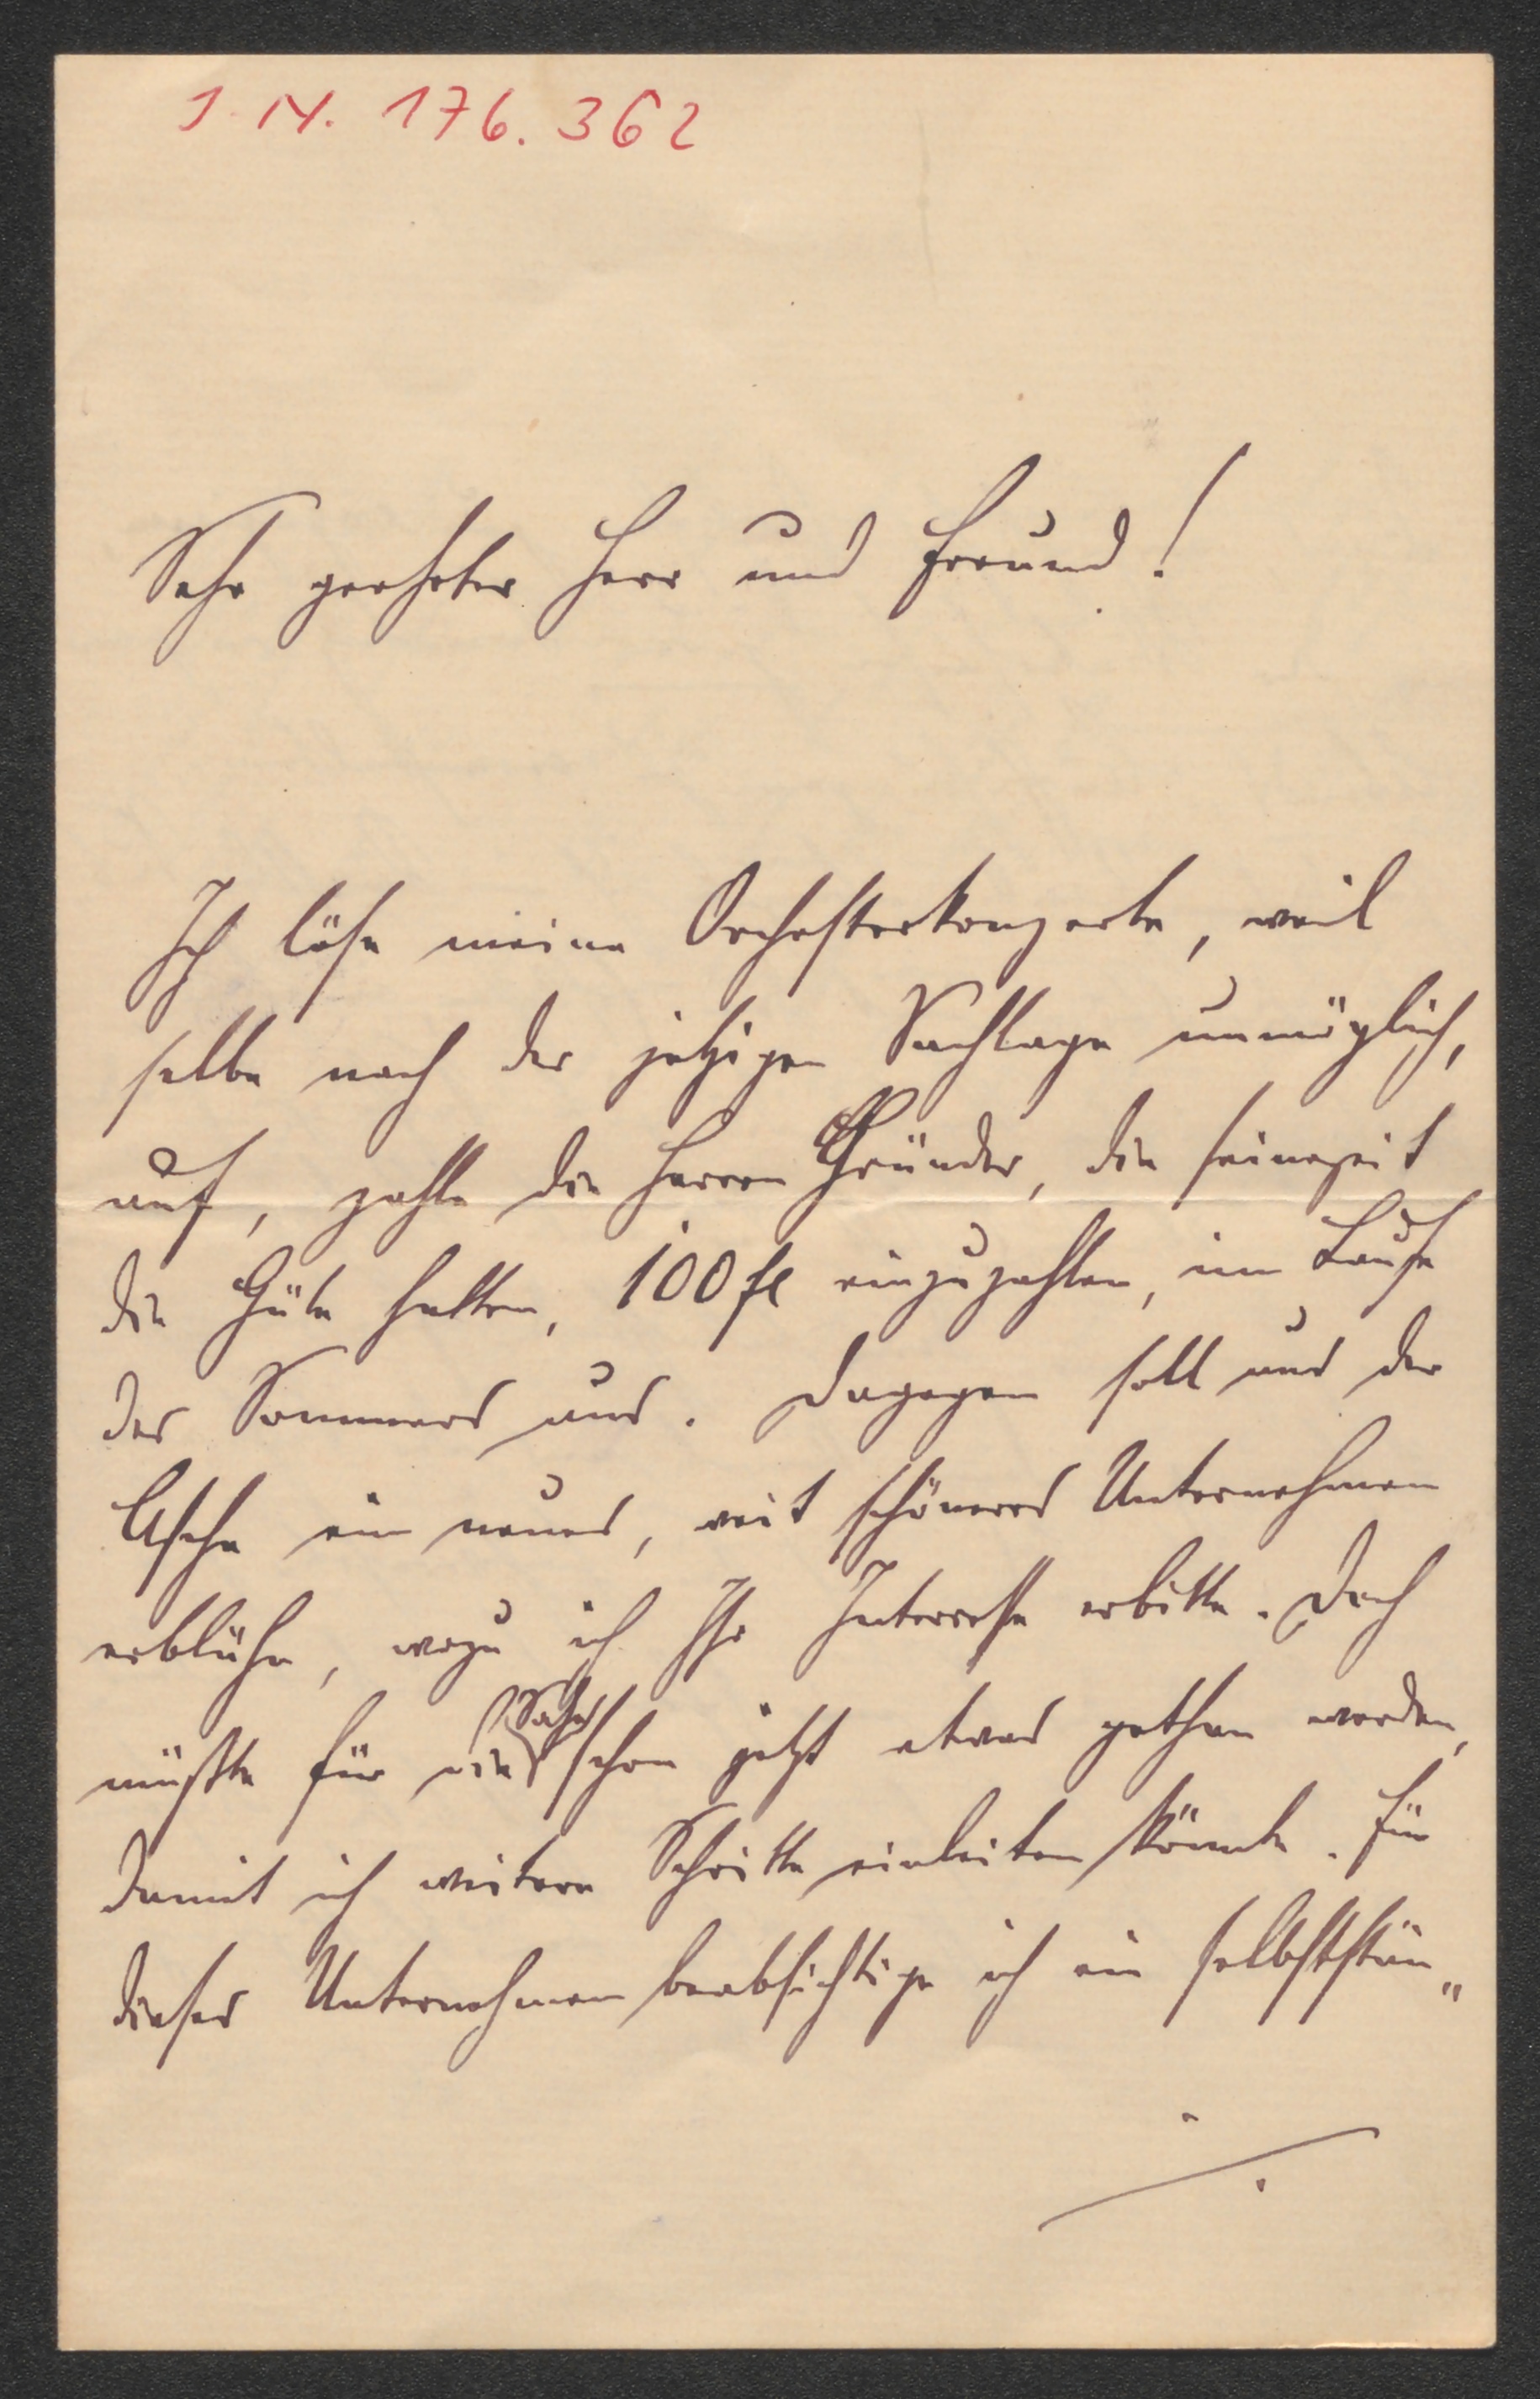 J. N. 176.362
Sehr geehrter Herr und Freund!
Ich löse meine Orchesterkonzerte, weil
selbe nach der jetzigen Sachlage unmöglich,
auf, zahle die Herren Gründer, die seinezeit
die Güte hatten, 100 fl einzuzahlen, im Laufe
des Sommers aus. Dagegen soll aus der
Asche ein neues, weit schöneres Unternehmen
erblühn, wozu ich Ihr Interesse erbitte. Doch
müßte für die Sache schon jetzt etwas gethan werden,
damit ich weitere Schritte einleiten könnte. Für
dieses Unternehmen beabsichtige ich ein selbststän„